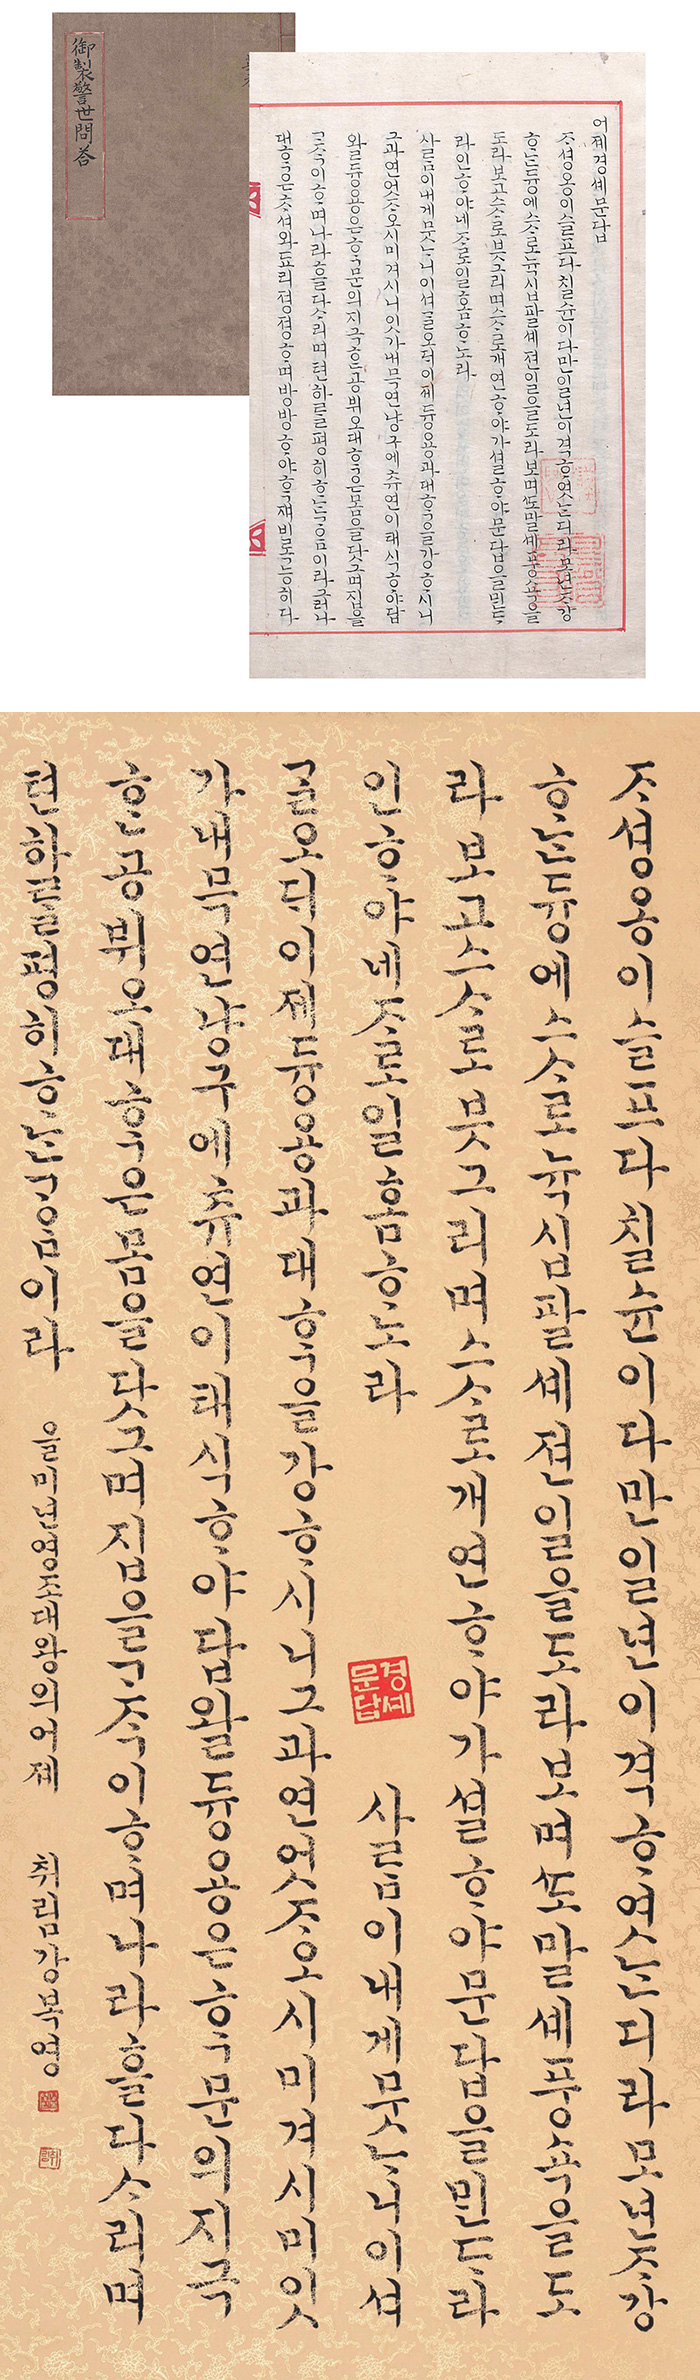 御製警世問答
어졔경셰문답
ᄌᆞ셩옹이슬프다칠슌이다만일년이격ᄒᆞ엿ᄂᆞᆫ디라모년ᄌᆞ강
ᄒᆞᄂᆞᆫ듕에스ᄉᆞ로뉵십팔셰젼일을도라보며ᄯᅩ말셰풍쇽을
도라보고스ᄉᆞ로붓그리며스ᄉᆞ로개연ᄒᆞ야가셜ᄒᆞ야문답을ᄆᆡᆫᄃᆞ
라인ᄒᆞ야네ᄌᆞ로일홈ᄒᆞ노라
사ᄅᆞᆷ이내게뭇ᄂᆞ니이셔ᄀᆞᆯ오ᄃᆡ이졔듕용과대ᄒᆞᆨ을강ᄒᆞ시니
그과연엇ᄌᆞ오시미겨시니잇가내묵연냥구에츄연이태식ᄒᆞ야답
왈듕용은ᄒᆞᆨ문의지극ᄒᆞᆫ공뷔오대ᄒᆞᆨ은몸을닷그며집을
ᄀᆞᄌᆞᆨ이ᄒᆞ며나라흘다ᄉᆞ리며텬하ᄅᆞᆯ평히ᄒᆞᄂᆞᆫᄀᆞ음이라그러나
대ᄒᆞᆨ은ᄎᆞ셔와됴리졍졍ᄒᆞ며방방ᄒᆞ야ᄒᆞᆨ재비록능히다
ᄌᆞ셩옹이슬프다칠슌이다만일년이격ᄒᆞ엿ᄂᆞᆫ디라모년ᄌᆞ강
ᄒᆞᄂᆞᆫ듕에스ᄉᆞ로뉵십팔셰젼일을도라보며ᄯᅩ말셰풍쇽을도
라보고스ᄉᆞ로붓그리며스ᄉᆞ로개연ᄒᆞ야가셜ᄒᆞ야문답을ᄆᆡᆫᄃᆞ라
인ᄒᆞ야네ᄌᆞ로일홈ᄒᆞ노라
경셰문답
사ᄅᆞᆷ이내게뭇ᄂᆞ니이셔
ᄀᆞᆯ오ᄃᆡ이졔듕용과대ᄒᆞᆨ을강ᄒᆞ시니그과연엇ᄌᆞ오시미겨시미잇
가내묵연냥구에츄연이태식ᄒᆞ야답왈듕용은ᄒᆞᆨ문의지극
ᄒᆞᆫ공뷔오대ᄒᆞᆨ은몸을닷그며집을ᄀᆞᄌᆞᆨ이ᄒᆞ며나라흘다ᄉᆞ리며
텬하ᄅᆞᆯ평히ᄒᆞᄂᆞᆫᄀᆞ음이라
을미년영조대왕의어제
취림강복영